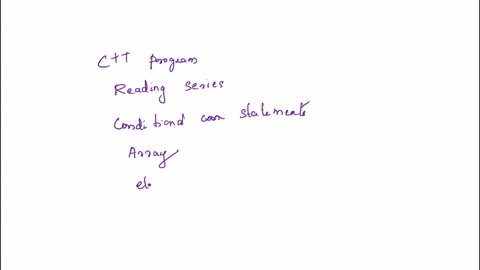 C++ program
Reading series
Conditional statements
Array